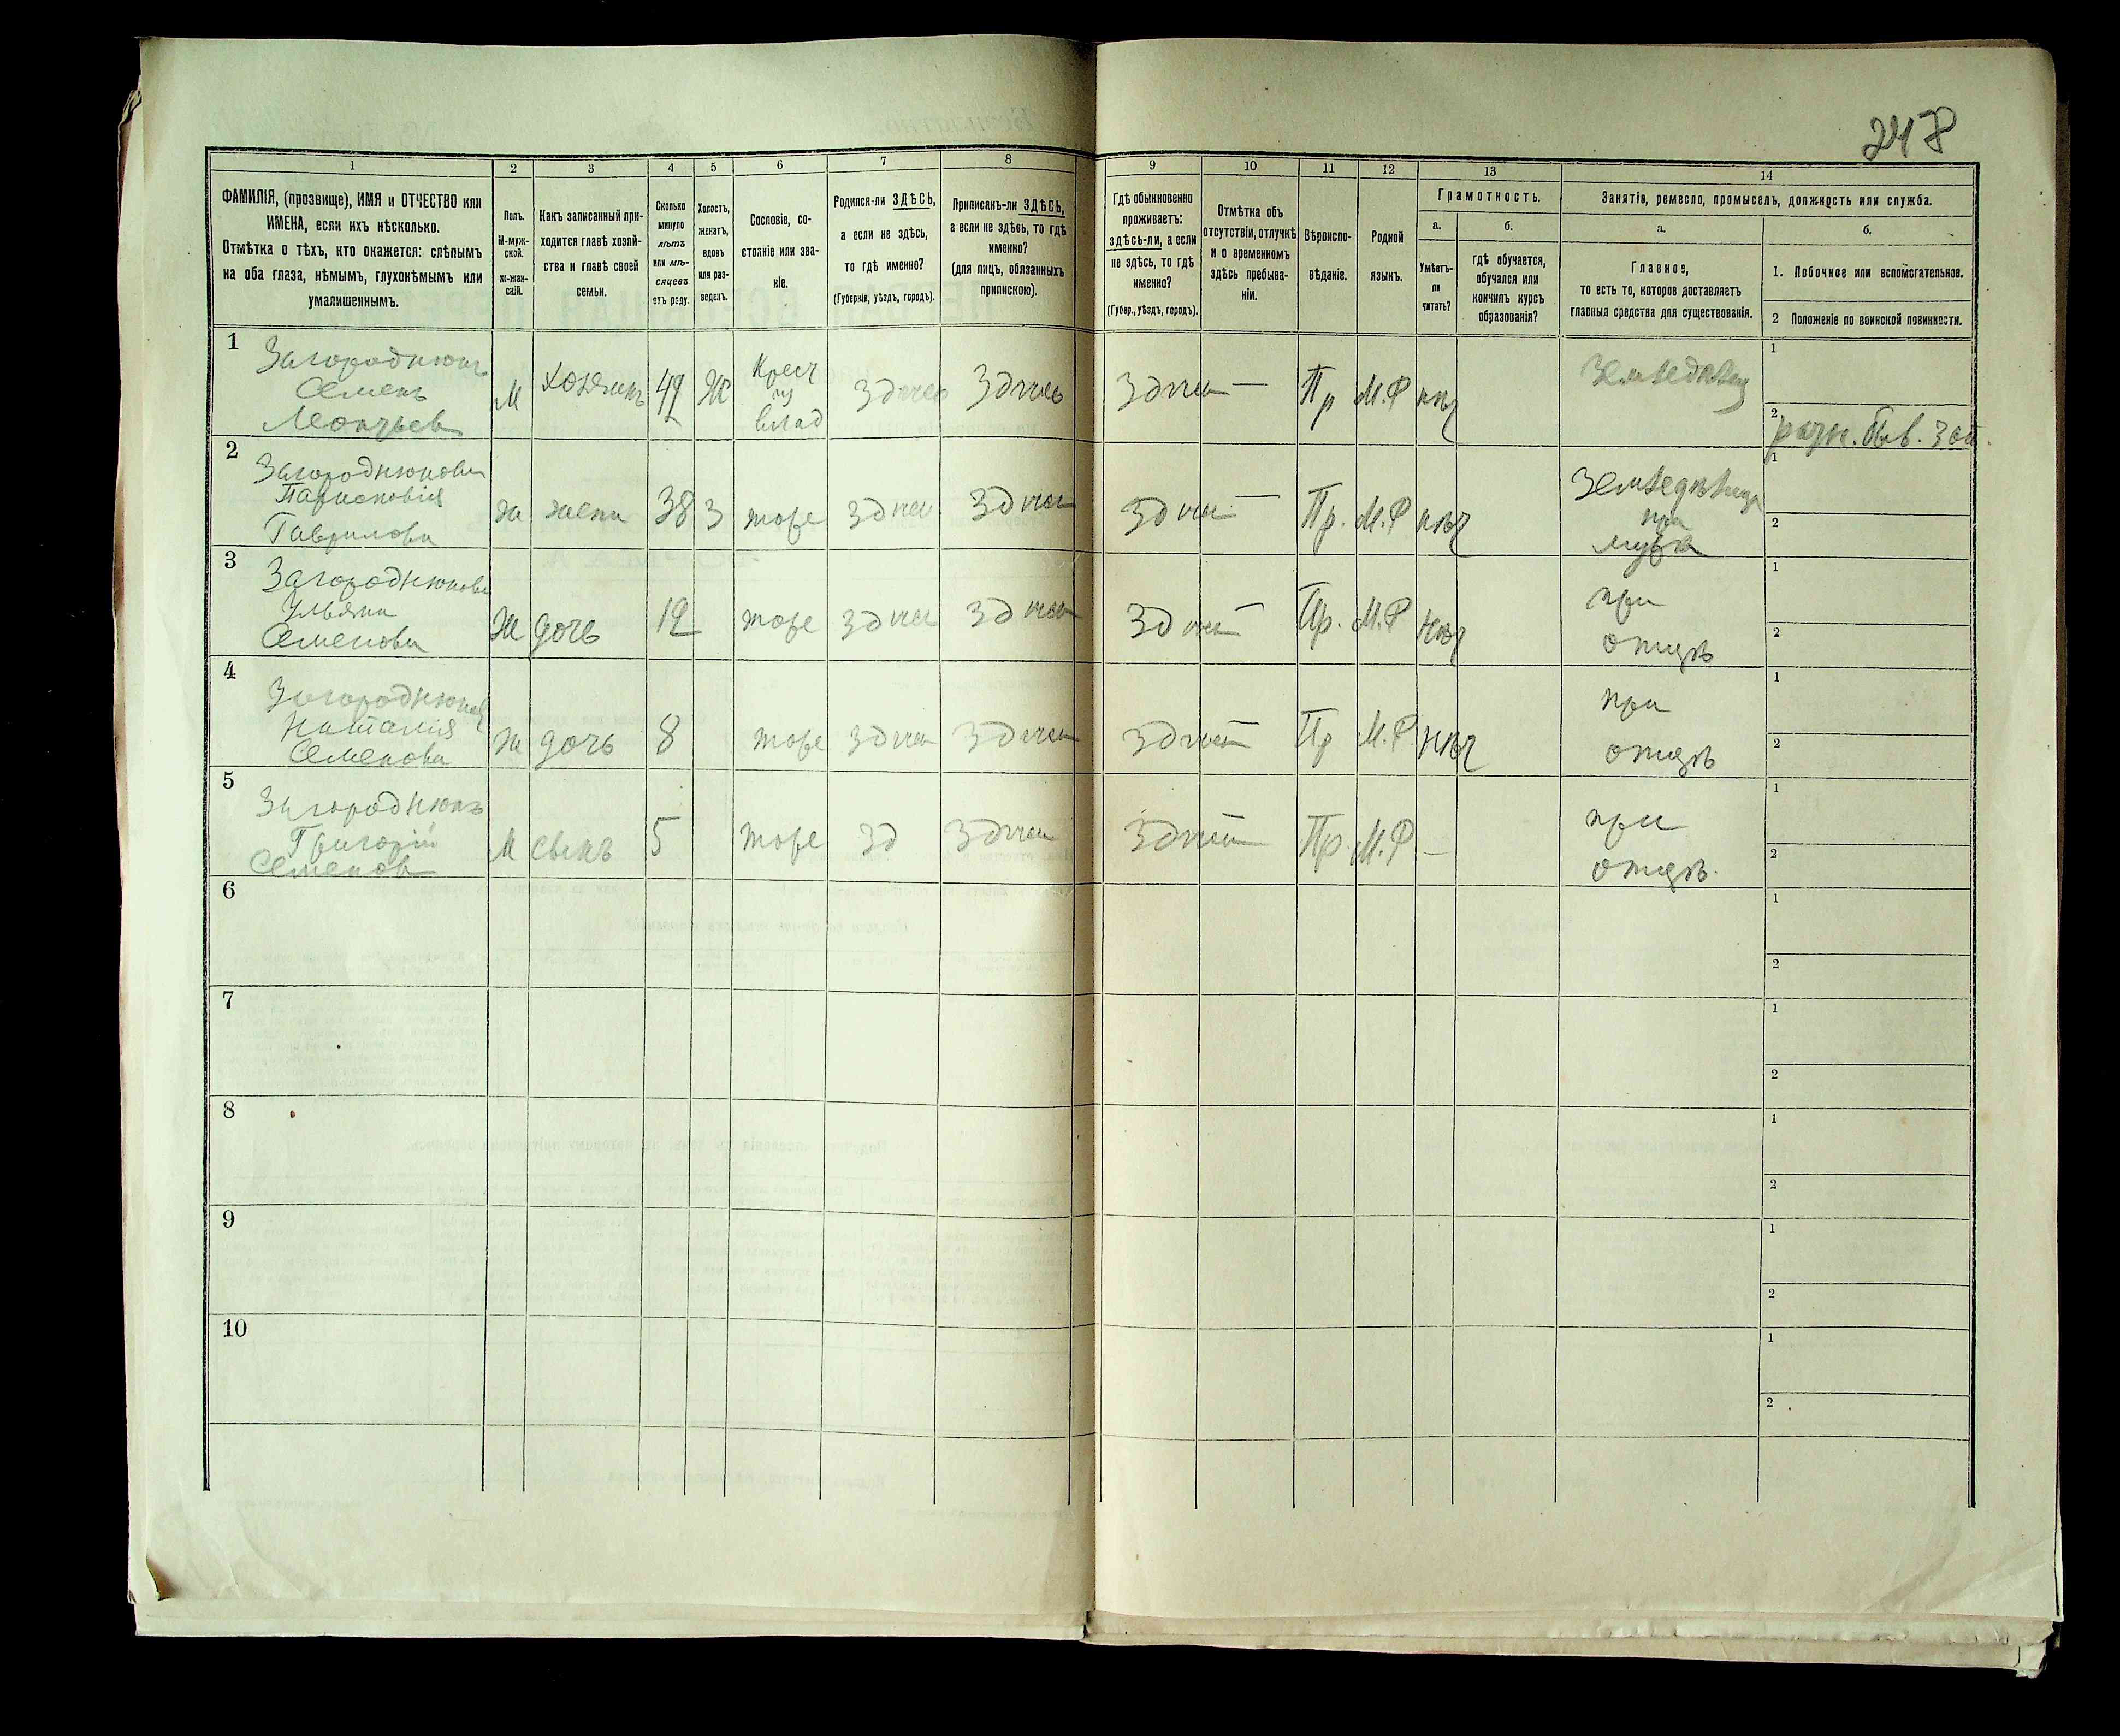 248
1
2
3
4
5
6
7
8
9
10
11
12
13
14
ФАМИЛІЯ, (прозвище), ИМЯ и ОТЧЕСТВО или
ИМЕНА, если ихъ нѣсколько.
Отмѣтка о тѣхъ, кто окажется: слѣпымъ
на оба глаза, нѣмымъ, глухонѣмымъ или
умалишеннымъ.
Полъ.
М-муж-
ской.
Ж-жен-
скій.
Какъ записанный при-
ходится главѣ хозяй-
ства и главѣ своей
семьи.
Сколько
минуло
лѣтъ
или мѣ-
сяцевъ
отъ роду.
Холостъ,
женатъ,
вдовъ
или раз-
веденъ.
Сословіе, со-
стояніе или зва-
ніе.
Родился-ли ЗДѢСЬ,
а если не здѣсь,
то гдѣ именно?
(Губернія, уѣздъ, городъ).
Приписанъ-ли ЗДѢСЬ,
а если не здѣсь, то гдѣ
именно?
(для лицъ, обязанныхъ
припискою).
Гдѣ обыкновенно
проживаетъ:
здѣсь-ли, а если
не здѣсь, то гдѣ
именно?
(Губер., уѣздъ, городъ).
Отмѣтка объ
отсутствіи, отлучкѣ
и о временномъ
здѣсь пребыва-
ніи.
Вѣроиспо-
вѣданіе.
Родной
языкъ.
Грамотность.
а.
Умѣетъ-
ли
читать?
б.
гдѣ обучается,
обучался или
кончилъ курсъ
образованія?
Занятія, ремесло, промыселъ, должность или служба.
а.
Главное,
то есть то, которое доставляетъ
главныя средства для существованія.
б.
1. Побочное или вспомогательное.
2 Положеніе по воинской повинности.
1
Загороднюкъ
Семенъ
Леонтьев
М
хозяинъ
Ж
Крест
из
влад
здѣсь
здѣсь
здѣсь —
Пр
М.Р
нѣт
Земледѣлец
1
2
2
Загороднюкова
Парасковія
Гаврилова
ж
жена
38
З
тоже
здѣсь
здѣсь
здѣсь —
Пр.
М.Р
нѣт
Земледѣлица
при
мужѣ
1
2
3
Загороднюкова
Ульяна
Семенова
Ж
дочь
12
тоже
здѣсь
здѣсь
здѣсь —
Пр.
М.Р
нѣт
при
отцѣ
1
2
4
Загороднюкова
Наталія
Семенова
ж
дочь
8
тоже
здѣсь
здѣсь
здѣсь —
Пр
М.Р.
нѣт
при
отцѣ
1
2
5
Загороднюкъ
Григорій
Семенов
М
сынъ
5
тоже
зд
здѣсь
здѣсь —
Пр.
М.Р
—
при
отцѣ.
1
2
6
1
2
7
1
2
8
1
2
9
1
2
10
1
2